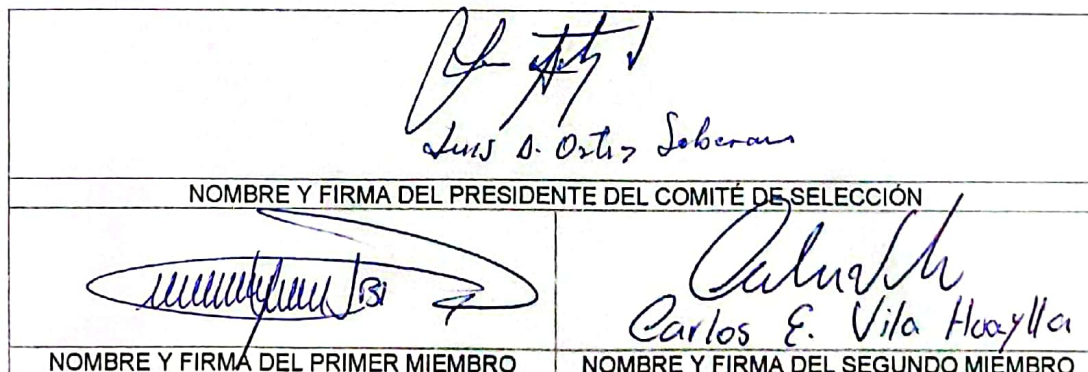 Luis A. Ortiz Soberanis
NOMBRE Y FIRMA DEL PRESIDENTE DEL COMITÉ DE SELECCIÓN
Carlos E. Vila Huaylla
NOMBRE Y FIRMA DEL PRIMER MIEMBRO
NOMBRE Y FIRMA DEL SEGUNDO MIEMBRO